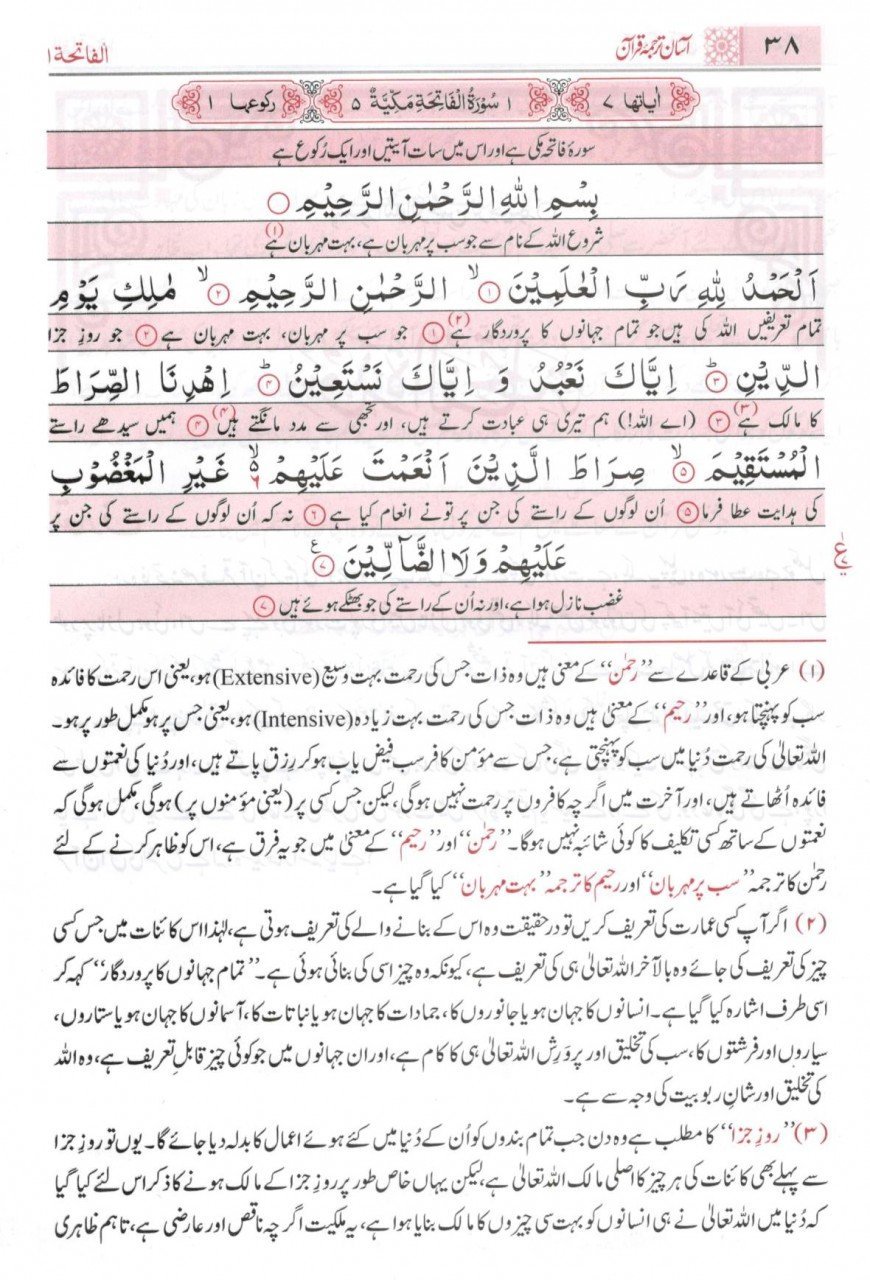 ۳۸ آسان ترجمۂ قرآن الفاتحة ۱
اٰیاتها ۷ ۱ سُوْرَةُ الْفَاتِحَةِ مَكِّيَّةٌ ۵ رکوعها ۱
سورۂ فاتحہ مکی ہے اور اس میں سات آیتیں اور ایک رُکوع ہے
بِسْمِ اللهِ الرَّحْمٰنِ الرَّحِيْمِ ○
شروع اللہ کے نام سے جو سب پر مہربان ہے، بہت مہربان ہے (۱)
اَلْحَمْدُ لِلّٰهِ رَبِّ الْعٰلَمِيْنَ ۙ﴿۱﴾ الرَّحْمٰنِ الرَّحِيْمِ ۙ﴿۲﴾ مٰلِكِ يَوْمِ
تمام تعریفیں اللہ کی ہیں جو تمام جہانوں کا پروردگار ہے (۲) ﴿۱﴾ جو سب پر مہربان، بہت مہربان ہے ﴿۲﴾ جو روزِ جزا
الدِّيْنِ ؕ﴿۳﴾ اِيَّاكَ نَعْبُدُ وَ اِيَّاكَ نَسْتَعِيْنُ ؕ﴿۴﴾ اِهْدِنَا الصِّرَاطَ
کا مالک ہے (۳) ﴿۳﴾ (اے اللہ!) ہم تیری ہی عبادت کرتے ہیں، اور تجھی سے مدد مانگتے ہیں (۴) ﴿۴﴾ ہمیں سیدھے راستے
الْمُسْتَقِيْمَ ۙ﴿۵﴾ صِرَاطَ الَّذِيْنَ اَنْعَمْتَ عَلَيْهِمْ ۙ۬ۦ۶ غَيْرِ الْمَغْضُوْبِ
کی ہدایت عطا فرما ﴿۵﴾ اُن لوگوں کے راستے کی جن پر تو نے انعام کیا ہے ﴿۶﴾ نہ کہ اُن لوگوں کے راستے کی جن پر
عَلَيْهِمْ وَلَا الضَّآلِّيْنَ ﴿۷﴾ ع
غضب نازل ہوا ہے، اور نہ اُن کے راستے کی جو بھٹکے ہوئے ہیں ﴿۷﴾
(۱) عربی کے قاعدے سے ”رحمٰن“ کے معنی ہیں وہ ذات جس کی رحمت بہت وسیع (Extensive) ہو، یعنی اس رحمت کا فائدہ
سب کو پہنچتا ہو، اور ”رحیم“ کے معنی ہیں وہ ذات جس کی رحمت بہت زیادہ (Intensive) ہو، یعنی جس پر ہو مکمل طور پر ہو۔
اللہ تعالیٰ کی رحمت دُنیا میں سب کو پہنچتی ہے، جس سے مؤمن کافر سب فیض یاب ہو کر رِزق پاتے ہیں، اور دُنیا کی نعمتوں سے
فائدہ اُٹھاتے ہیں، اور آخرت میں اگرچہ کافروں پر رحمت نہیں ہوگی، لیکن جس کسی پر (یعنی مؤمنوں پر) ہوگی، مکمل ہوگی کہ
نعمتوں کے ساتھ کسی تکلیف کا کوئی شائبہ نہیں ہوگا۔ ”رحمٰن“ اور ”رحیم“ کے معنیٰ میں جو یہ فرق ہے، اس کو ظاہر کرنے کے لئے
رحمٰن کا ترجمہ ”سب پر مہربان“ اور رحیم کا ترجمہ ”بہت مہربان“ کیا گیا ہے۔
(۲) اگر آپ کسی عمارت کی تعریف کریں تو درحقیقت وہ اس کے بنانے والے کی تعریف ہوتی ہے، لہٰذا اس کائنات میں جس کسی
چیز کی تعریف کی جائے وہ بالآخر اللہ تعالیٰ ہی کی تعریف ہے، کیونکہ وہ چیز اسی کی بنائی ہوئی ہے۔ ”تمام جہانوں کا پروردگار“ کہہ کر
اسی طرف اشارہ کیا گیا ہے۔ انسانوں کا جہان ہو یا جانوروں کا، جمادات کا جہان ہو یا نباتات کا، آسمانوں کا جہان ہو یا ستاروں،
سیاروں اور فرشتوں کا، سب کی تخلیق اور پرورِش اللہ تعالیٰ ہی کا کام ہے، اور ان جہانوں میں جو کوئی چیز قابلِ تعریف ہے، وہ اللہ
کی تخلیق اور شانِ ربوبیت کی وجہ سے ہے۔
(۳) ”روزِ جزا“ کا مطلب ہے وہ دن جب تمام بندوں کو اُن کے دُنیا میں کئے ہوئے اعمال کا بدلہ دیا جائے گا۔ یوں تو روزِ جزا
سے پہلے بھی کائنات کی ہر چیز کا اصلی مالک اللہ تعالیٰ ہے، لیکن یہاں خاص طور پر روزِ جزا کے مالک ہونے کا ذکر اس لئے کیا گیا
کہ دُنیا میں اللہ تعالیٰ نے ہی انسانوں کو بہت سی چیزوں کا مالک بنایا ہوا ہے، یہ ملکیت اگرچہ ناقص اور عارضی ہے، تاہم ظاہری